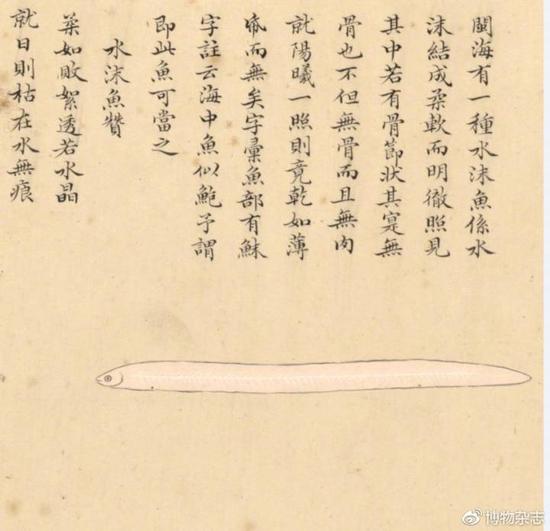 閩海有一種水沫魚係水
沫結成柔軟而明徹照見
其中若有骨節狀其寔無
骨也不但無骨而且無肉
就陽曦一照則竟乾如薄
紙而無矣字彙魚部有䱅
字註云海中魚似鮑予謂
即此魚可當之
水沫魚贊
槩如敗絮透若水晶
就日則枯在水無痕
博物杂志